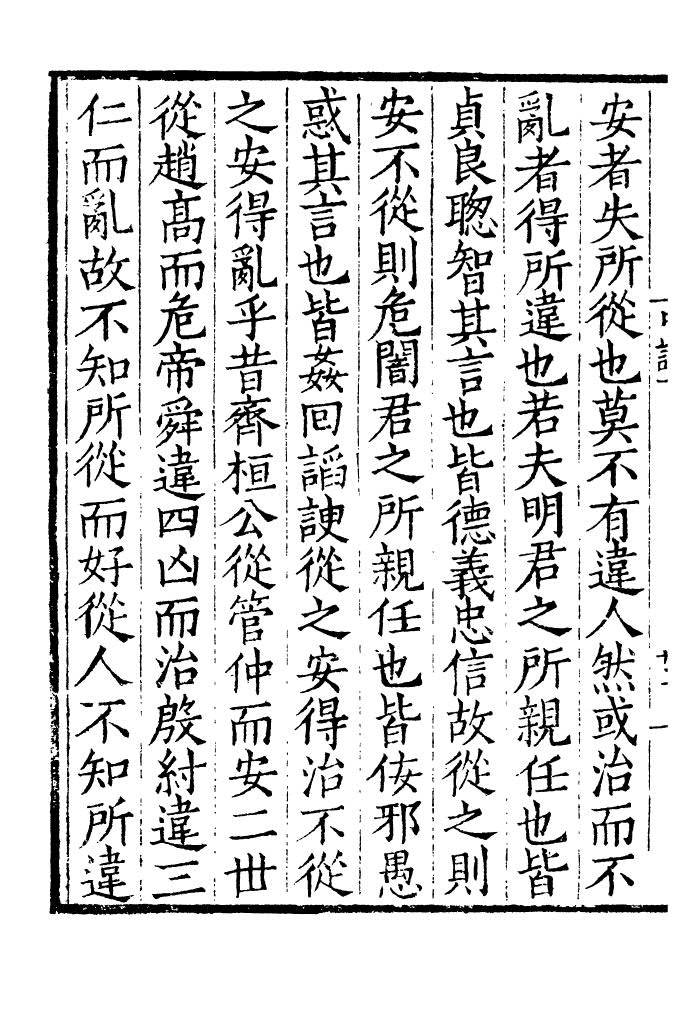 安者失所從也莫不有違人然或治而不
亂者得所違也若夫明君之所親任也皆
貞良聦智其言也皆德義忠信故從之則
安不從則危闇君之所親任也皆佞邪愚
惑其言也皆姦回謟諛從之安得治不從
之安得亂乎昔齊桓公從管仲而安二世
從趙髙而危帝舜違四凶而治殷紂違三
仁而亂故不知所從而好從人不知所違